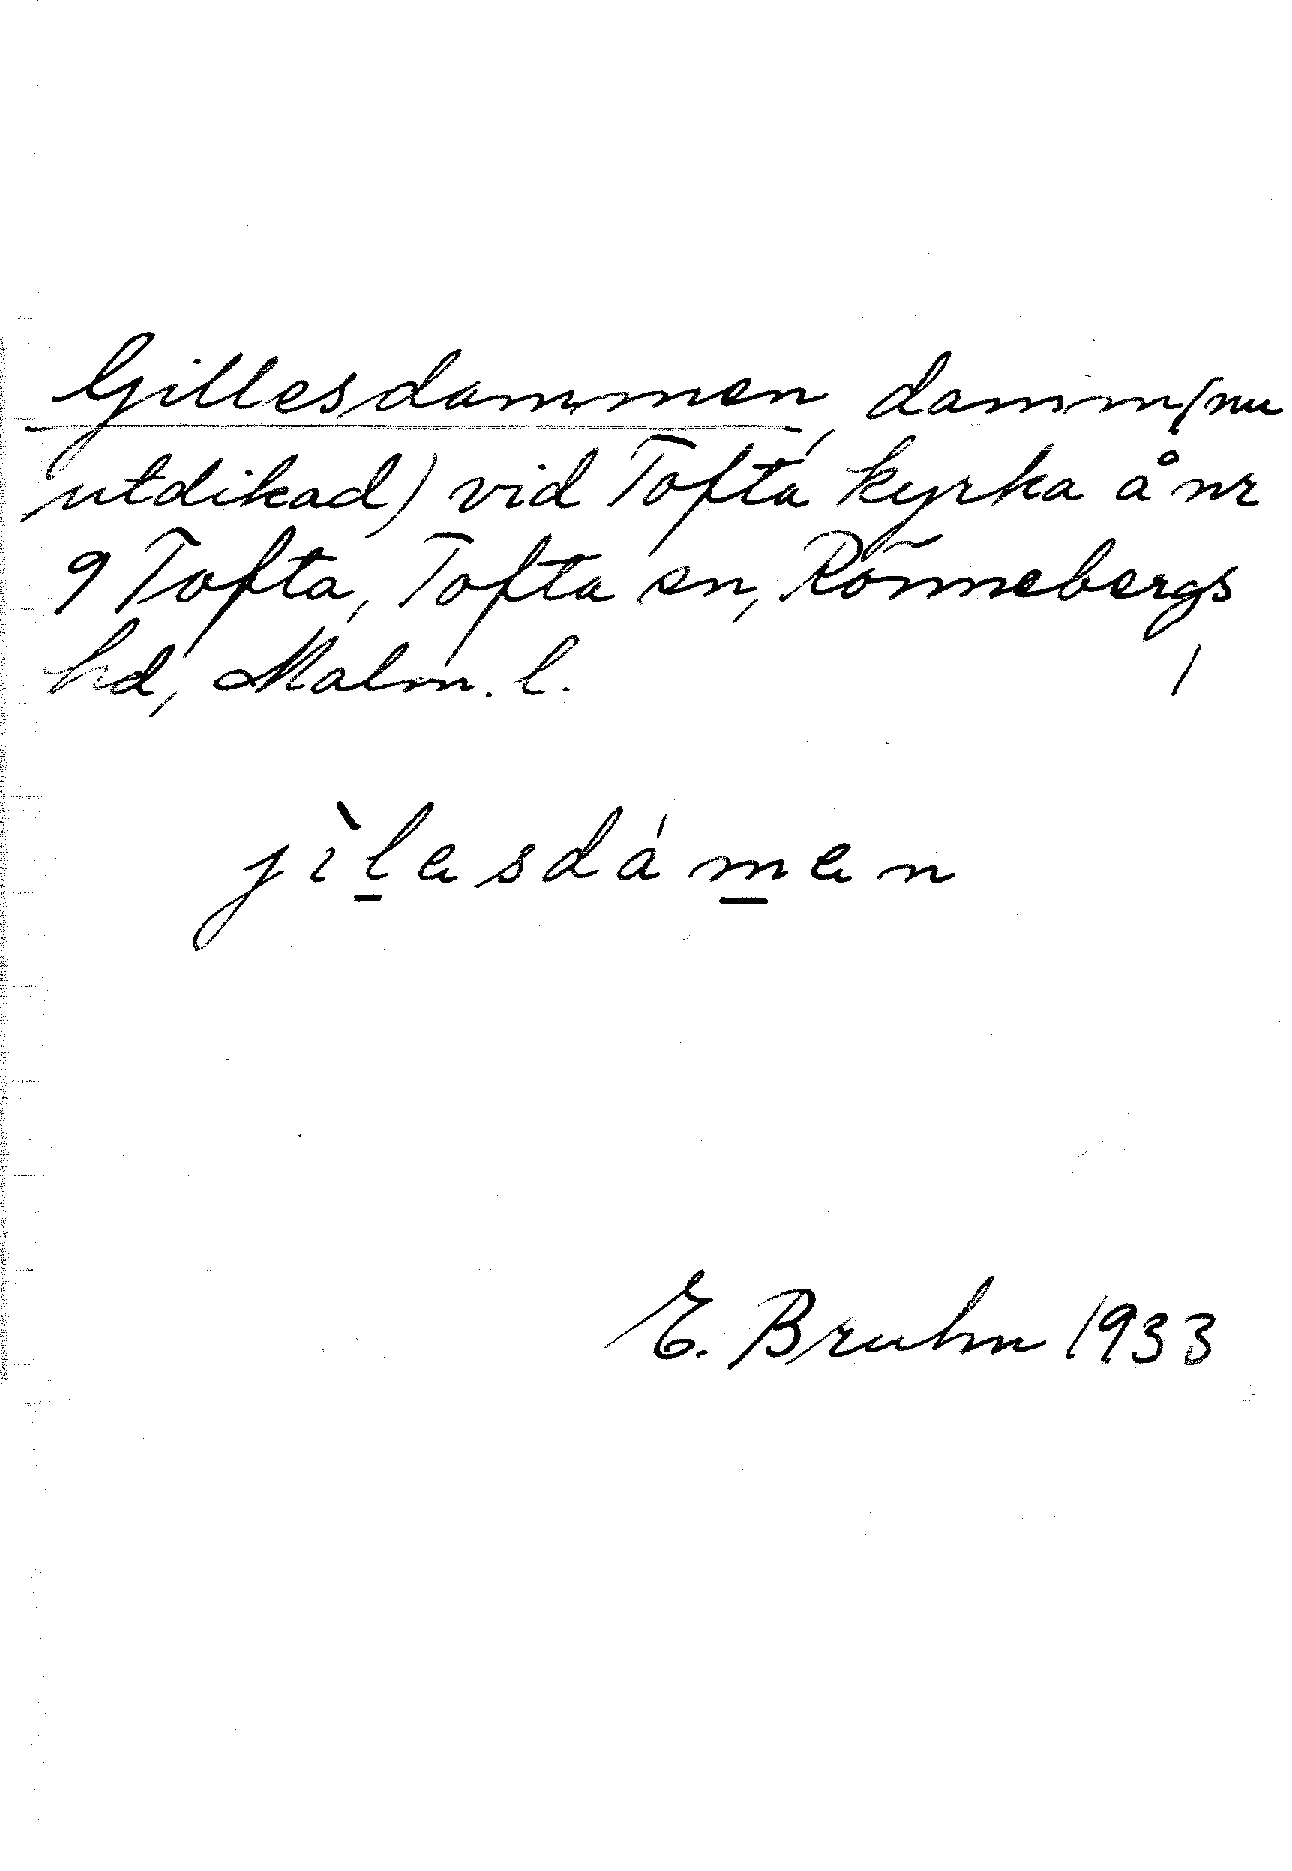 Gillesdammen, damm (nu
utdikad) vid Tofta kyrka å nr
9 Tofta, Tofta sn, Rönnebergs
hd, Malm. l.
jìlesdámen
E. Bruhn 1933